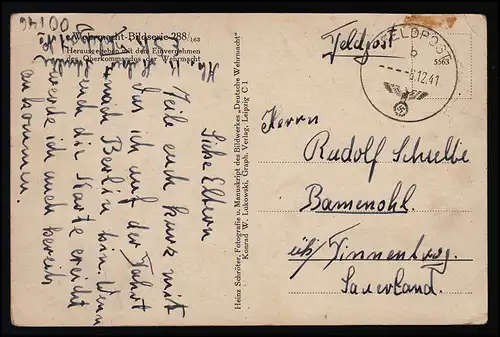 Wehrmacht-Bildserie 288/163
Herausgegeben mit dem Einvernehmen
des Oberkommandos der Wehrmacht
Liebe Eltern
Teile euch kurz mit
das ich auf der Fahrt
nach Berlin bin. Wenn
euch die Karte erreicht
werde ich auch bereits
ankommen.
Heinz Schröter, Fotografie u. Manuskript des Bildwerkes „Deutsche Wehrmacht"
Konrad W. Lukowski, Graph. Verlag, Leipzig C 1
Feldpost
FELDPOST
b
5.12.41
Herrn
Rudolf Schulte
Bamenohl
üb/ Finnentrop.
Sauerland.